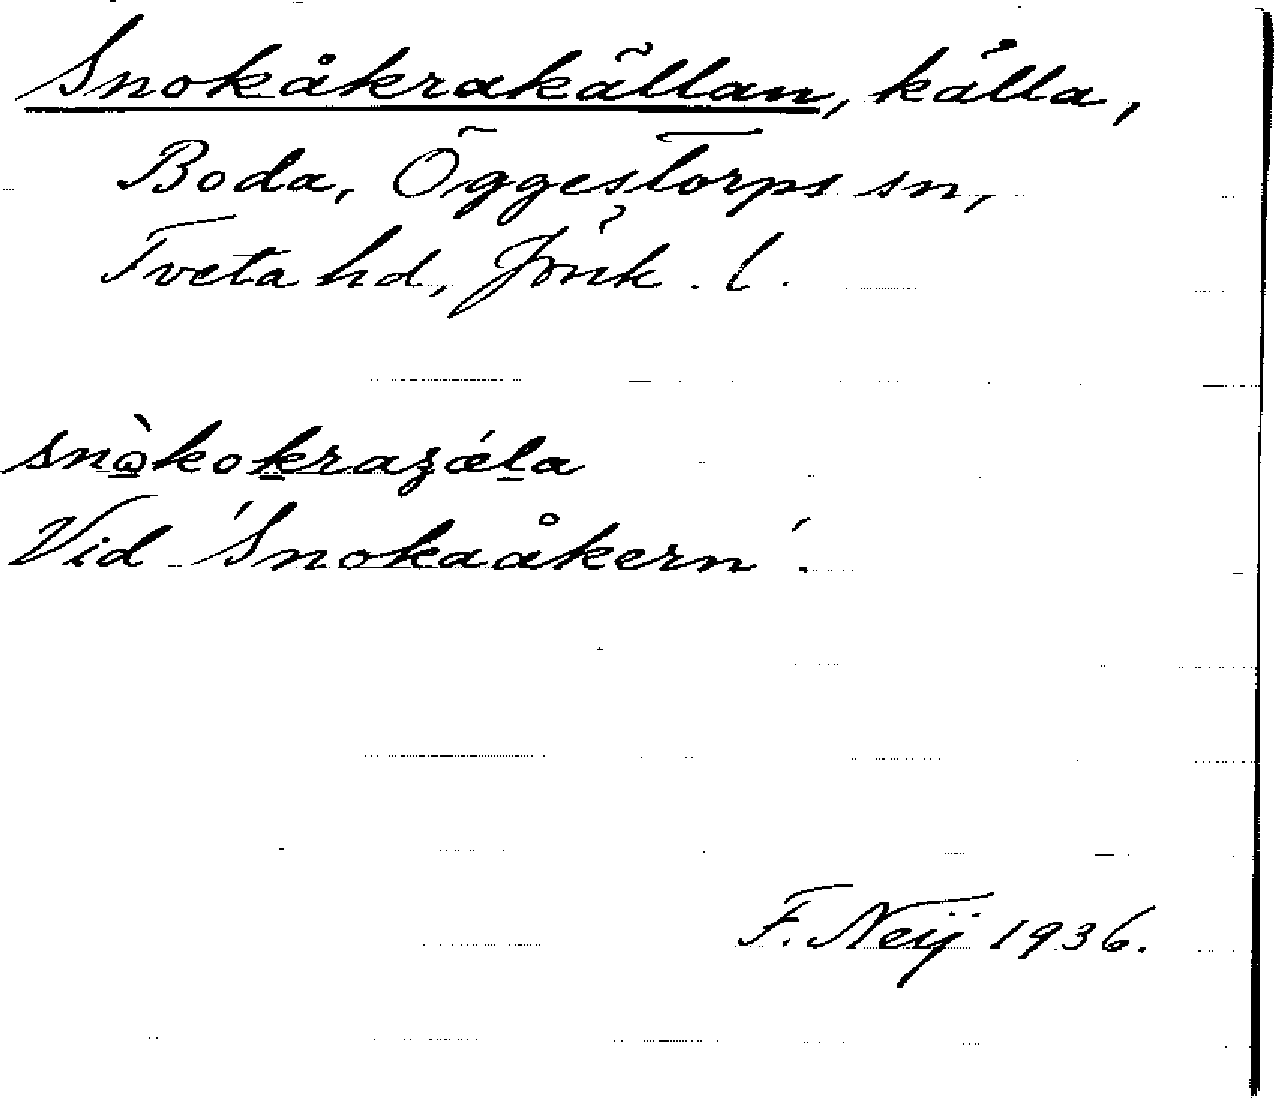 Snokåkrakällan, källa,
Boda, Öggestorps sn,
Tveta hd, Jönk. l.
snò̱koḵraʒǽḻa
Vid 'Snokaåkern'.
F. Neij 1936.